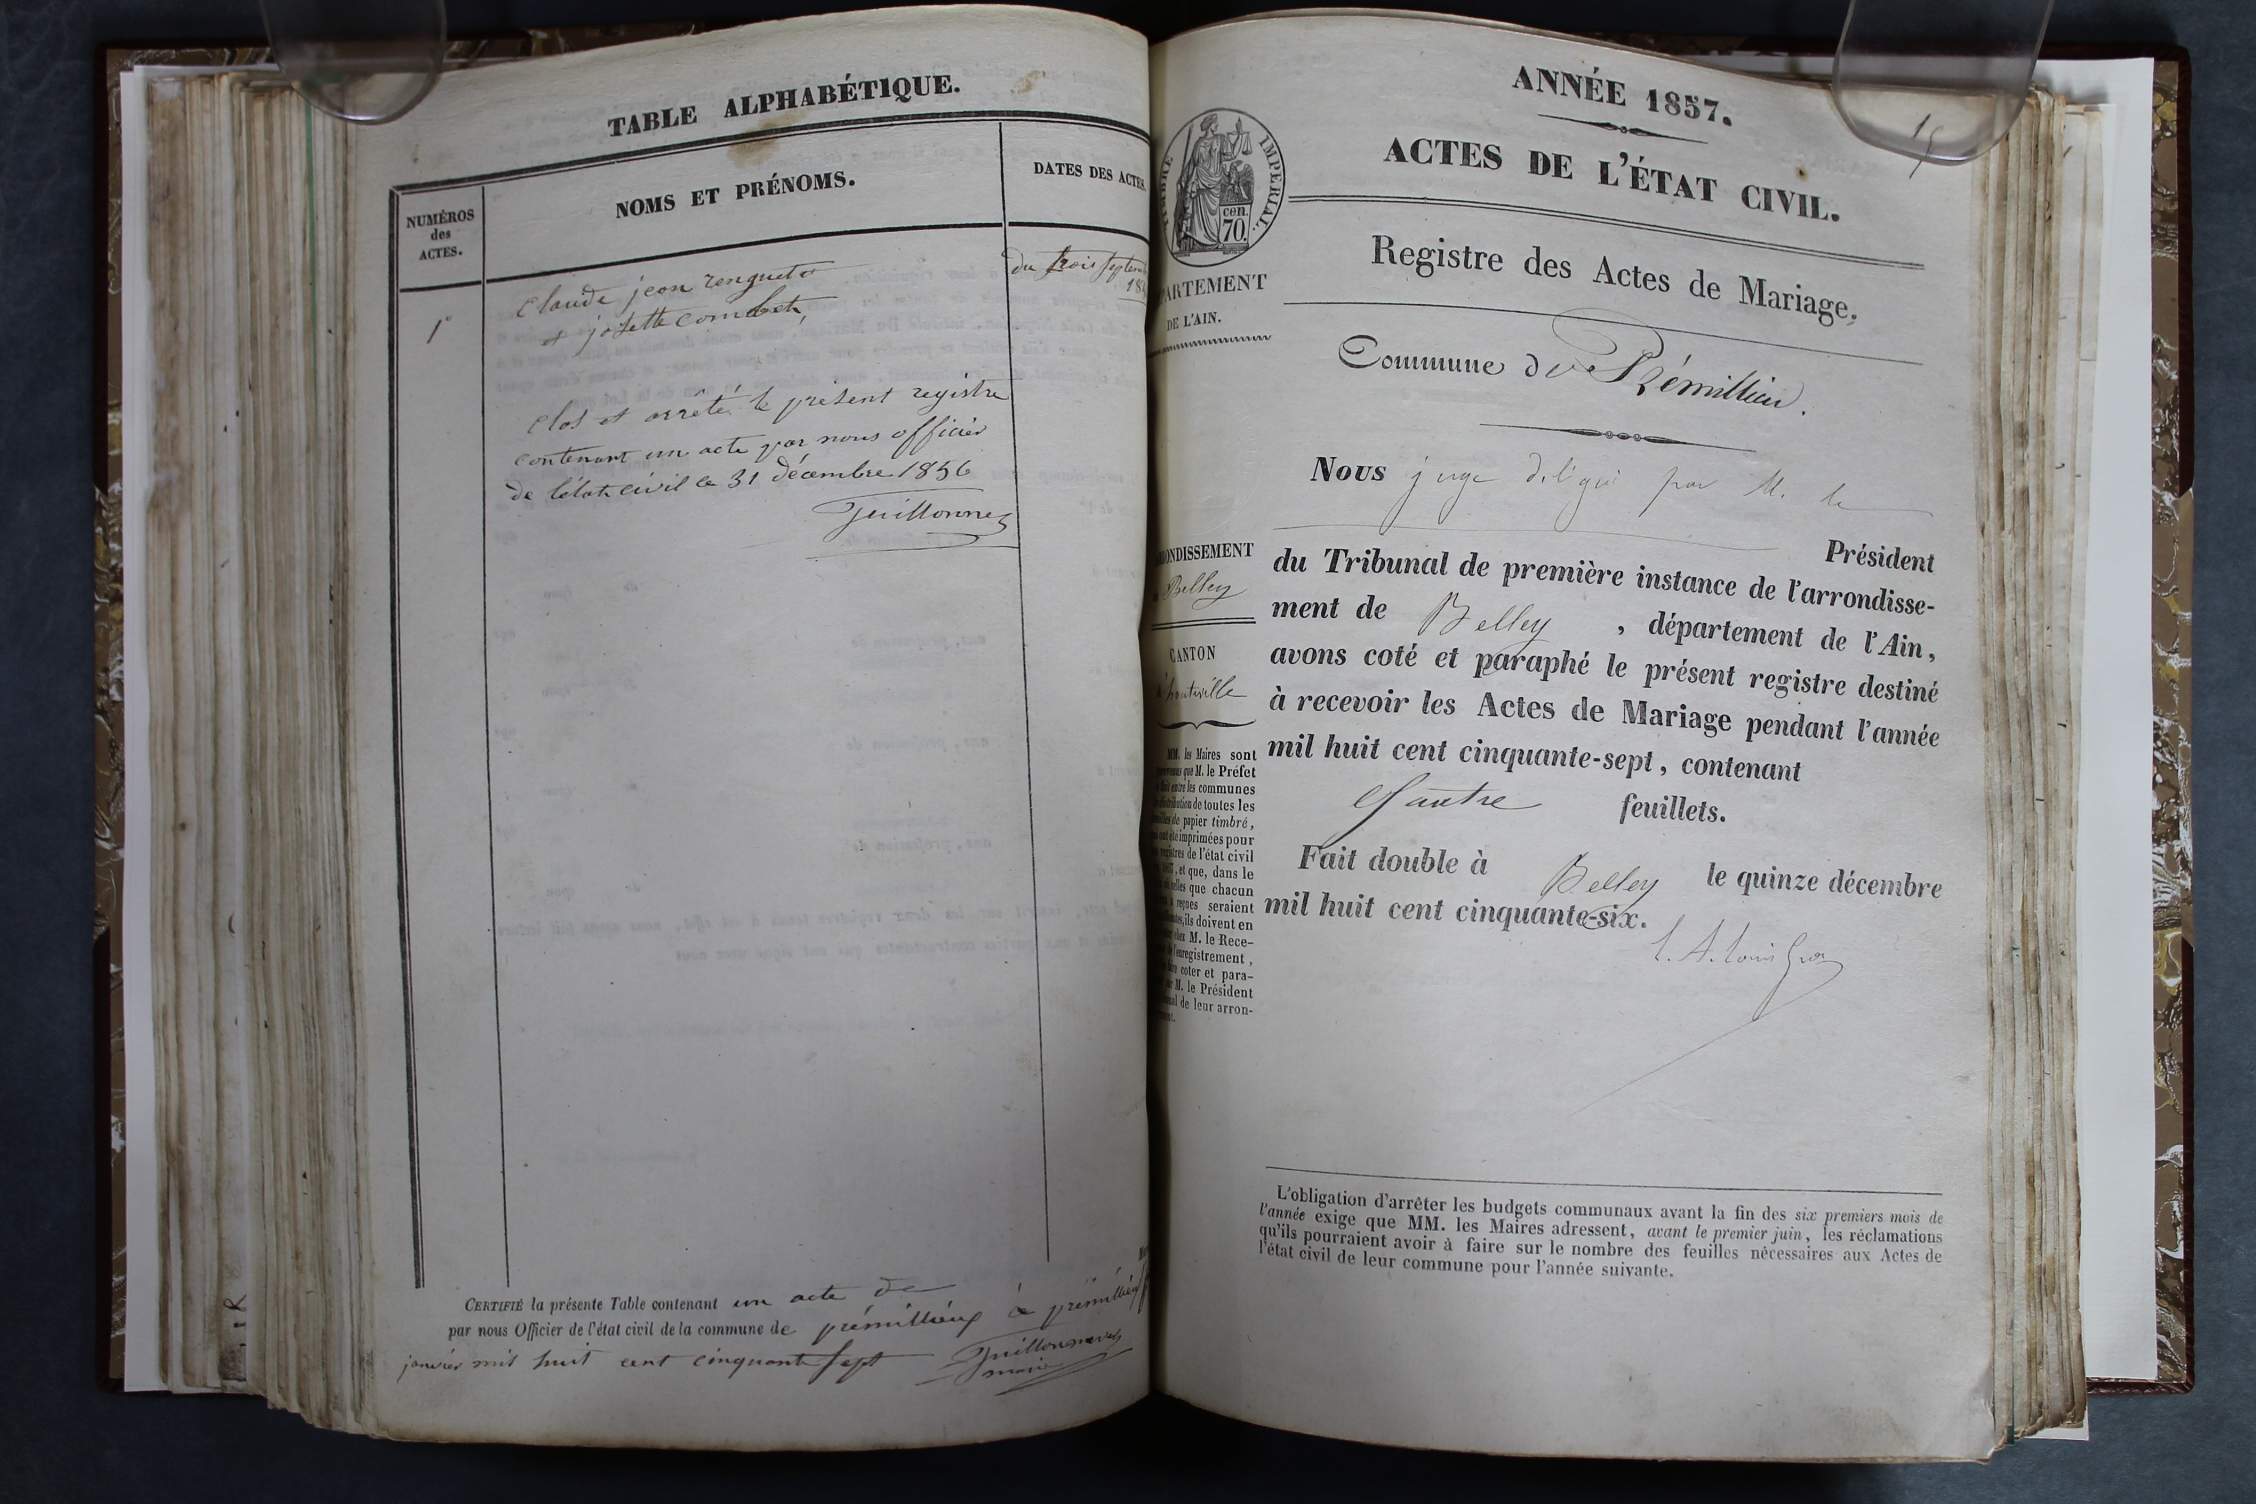 TABLE ALPHABÉTIQUE.
NUMÉROS
des
ACTES.
NOMS ET PRÉNOMS.
DATES DES ACTES
1°
Claude jean
et josette
du trois septem
18
clos et arrêté le présent registre
contenant un acte par nous officier
de l'état civil le 31 décembre 1856
CERTIFIÉ la présente Table contenant un acte de
par nous Officier de l'état civil de la commune de prémillieux à prémillieux
janvier mil huit cent cinquante sept
maire
ANNÉE 1857.
ACTES DE L'ÉTAT CIVIL.
TIMBRE IMPERIAL.
cen.
70.
PARTEMENT
DE L'AIN.
Registre des Actes de Mariage.
Commune de Prémillieu.
Nous juge délégué par M. le
Président
du Tribunal de première instance de l'arrondisse-
ment de Belley, département de l'Ain,
avons coté et paraphé le présent registre destiné
à recevoir les Actes de Mariage pendant l'année
mil huit cent cinquante-sept, contenant
quatre feuillets.
Fait double à Belley le quinze décembre
mil huit cent cinquante-six.
ONDISSEMENT
Belley
CANTON
hauteville
MM. les Maires sont
que M. le Préfet
entre les communes
distribution de toutes les
de papier timbré,
ont été imprimées pour
registres de l'état civil
, et que, dans le
elles que chacun
reçues seraient
ils doivent en
chez M. le Rece-
l'enregistrement,
coter et para-
M. le Président
de leur arron-
L'obligation d'arrêter les budgets communaux avant la fin des six premiers mois de
l'année exige que MM. les Maires adressent, avant le premier juin, les réclamations
qu'ils pourraient avoir à faire sur le nombre des feuilles nécessaires aux Actes de
l'état civil de leur commune pour l'année suivante.